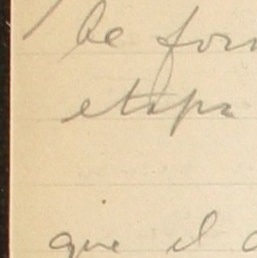 be for
etapa
que el